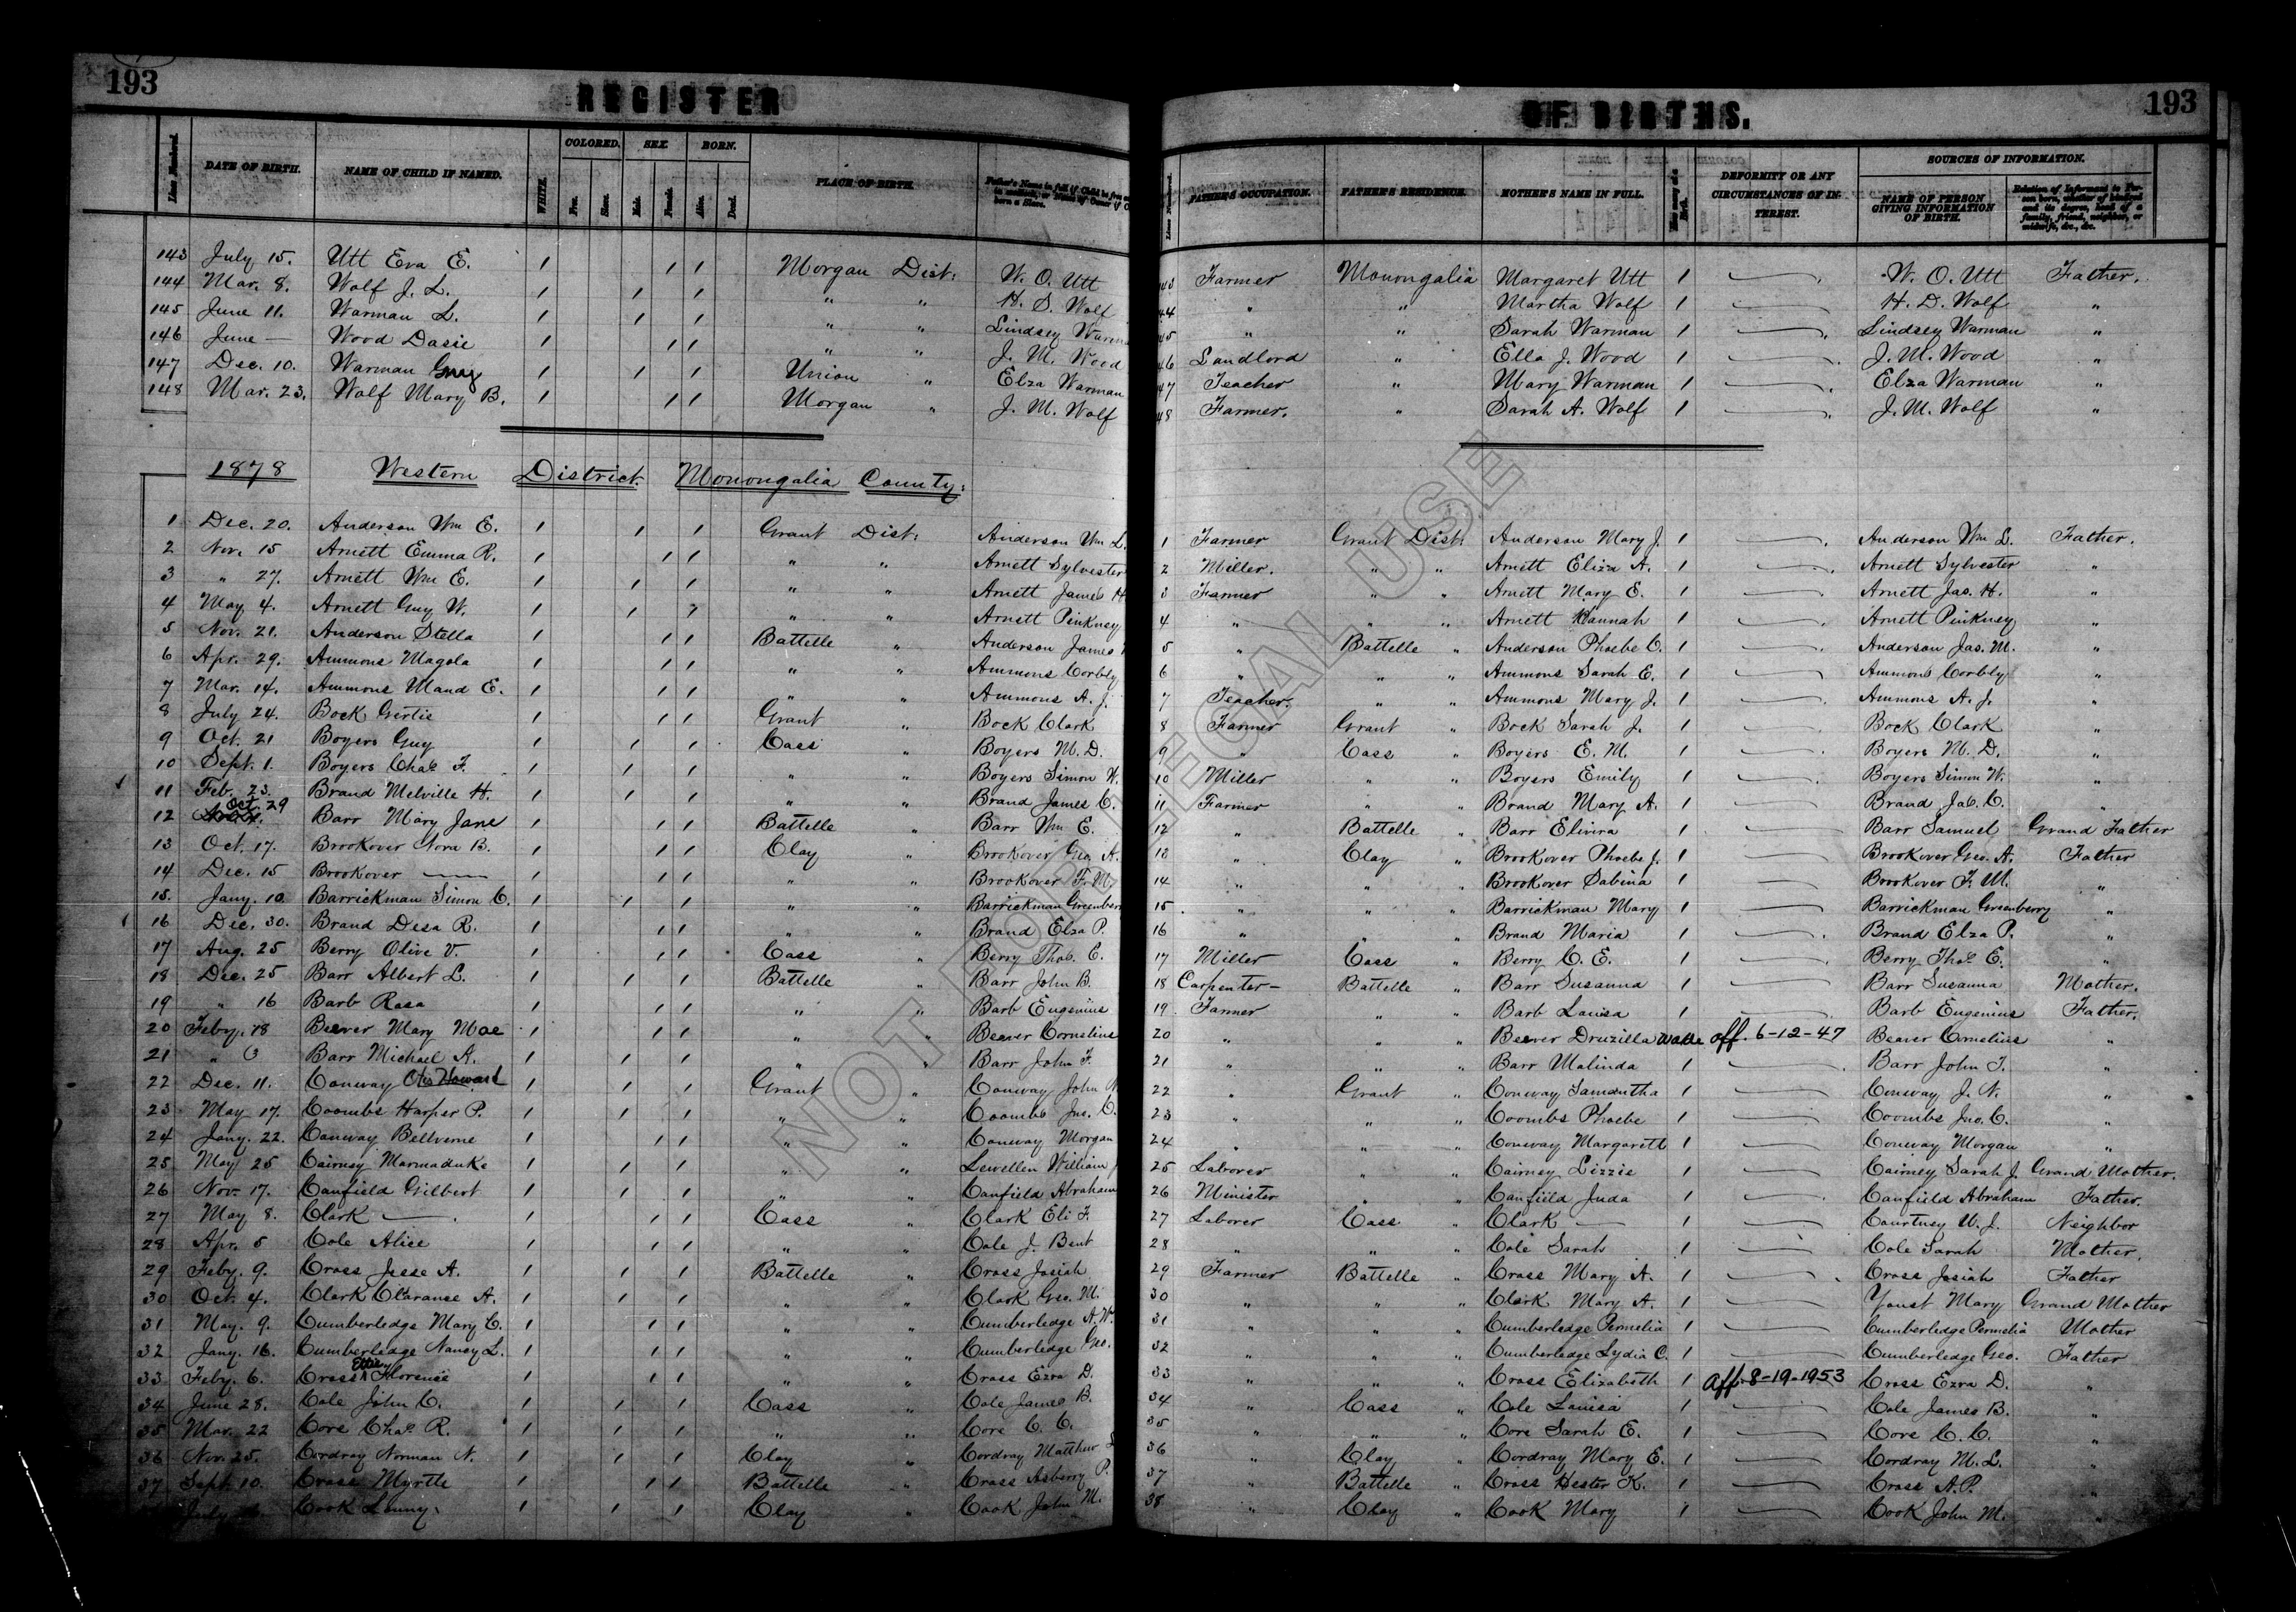 193
REGISTER
OF BIRTHS.
193
Lines Numbered. DATE OF BIRTH. NAME OF CHILD IF NAMED. WHITE. COLORED. Free. Slave. SEX. Male. Female. BORN. Alive. Dead. PLACE OF BIRTH. Father's Name in full if Child be free
born a Slave.
Lines Numbered. FATHER'S OCCUPATION. FATHER'S RESIDENCE. MOTHER'S NAME IN FULL. DEFORMITY OR ANY CIRCUMSTANCES OF INTEREST. SOURCES OF INFORMATION. NAME OF PERSON GIVING INFORMATION OF BIRTH. Relation of Informant to Person born, whether of kindred and its degree, head of a family, friend, neighbor, or midwife, &c., &c.
143 July 15. Utt Eva E. 1 1 1 Morgan Dist: W. O. Utt Farmer Monongalia Margaret Utt 1 W. O. Utt Father.
144 Mar. 8. Wolf J. L. 1 1 1 " " H. D. Wolf 44 " " Martha Wolf 1 H. D. Wolf "
145 June 11. Warman L. 1 1 1 " " Lindsey 45 " " Sarah Warman 1 Lindsey Warman "
146 June — Wood Dasie 1 1 1 " " J. M. Wood 46 Landlord " Ella J. Wood 1 J. M. Wood "
147 Dec. 10. Warman Guy 1 1 1 Union " Elza Warman 47 Teacher " Mary Warman 1 Elza Warman "
148 Mar. 23. Wolf Mary B. 1 1 1 Morgan " J. M. Wolf 48 Farmer. " Sarah A. Wolf 1 J. M. Wolf "
1878 Western District Monongalia County:
1 Dec. 20. Anderson Wm E. 1 1 1 Grant Dist: Anderson Wm L. 1 Farmer Grant Dist: Anderson Mary J. 1 Anderson Wm L. Father.
2 Nov. 15 Arnett Emma R. 1 1 1 " " Arnett Sylvester 2 Miller. " " Arnett Eliza A. 1 Arnett Sylvester "
3 " 27. Arnett Wm E. 1 1 1 " " Arnett James H 3 Farmer " " Arnett Mary E. 1 Arnett Jas. H. "
4 May 4. Arnett Guy W. 1 1 1 " " Arnett Pinkney 4 " " " Arnett Hannah 1 Arnett Pinkney "
5 Nov. 21. Anderson Stella 1 1 1 Battelle " Anderson James 5 " Battelle " Anderson Phoebe C. 1 Anderson Jas. M. "
6 Apr. 29. Ammons Magola 1 1 1 " " Ammons Corbly 6 " " " Ammons Sarah E. 1 Ammons Corbly "
7 Mar. 14. Ammons Maud E. 1 1 1 " " Ammons A. J. 7 Teacher. " " Ammons Mary J. 1 Ammons A. J. "
8 July 24. Bock Gertie 1 1 1 Grant " Bock Clark 8 Farmer Grant " Bock Sarah J. 1 Bock Clark "
9 Oct. 21 Boyers Guy 1 1 1 Cass " Boyers M. D. 9 " Cass " Boyers E. M. 1 Boyers M. D. "
10 Sept. 1. Boyers Chas F. 1 1 1 " " Boyers Simon W. 10 Miller " " Boyers Emily 1 Boyers Simon W. "
11 Feb. 23. Brand Melville H. 1 1 1 " " Brand James C. 11 Farmer " " Brand Mary A. 1 Brand Jas. C. "
12 Oct. 29 Barr Mary Jane 1 1 1 Battelle " Barr Wm E. 12 " Battelle " Barr Elivira 1 Barr Samuel Grand Father
13 Oct. 17. Brookover Nora B. 1 1 1 Clay " Brookover Geo A. 13 " Clay " Brookover Phoebe J. 1 Brookover Geo. A. Father
14 Dec. 15 Brookover — 1 1 1 " " Brookover F. M. 14 " " " Brookover Sabina 1 Brookover F. M. "
15. Jany. 10. Barrickman Simon C. 1 1 1 " " Barrickman 15 " " " Barrickman Mary 1 Barrickman Greenberry "
16 Dec. 30. Brand Desa R. 1 1 1 " " Brand Elza P. 16 " " " Brand Maria 1 Brand Elza P. "
17 Aug. 25 Berry Olive V. 1 1 1 Cass " Berry Thos. E. 17 Miller Cass " Berry C. E. 1 Berry Thos E. "
18 Dec. 25 Barr Albert L. 1 1 1 Battelle " Barr John B. 18 Carpenter— Battelle " Barr Susanna 1 Barr Susanna Mother.
19 " 16 Barb Rosa 1 1 1 " " Barb Eugenius 19 Farmer " " Barb Louisa 1 Barb Eugenius Father.
20 Feby. 18 Beaver Mary Mae 1 1 1 " " Beaver Cornelius 20 " " " Beaver Druzilla aff. 6-12-47 Beaver Cornelius "
21 " Barr Michael A. 1 1 1 " " Barr John F. 21 " " " Barr Malinda 1 Barr John F. "
22 Dec. 11. Conway Otis Howard 1 1 1 Grant " Conway John N 22 " Grant " Conway Samantha 1 Conway J. N. "
23 May 17. Coombs Harper P. 1 1 1 " " Coombs Jno. C. 23 " " " Coombs Phoebe 1 Coombs Jno. C. "
24 Jany. 22. Conway Bellverne 1 1 1 " " Conway Morgan 24 " " " Conway Margarett 1 Conway Morgan "
25 May 25 Cairney Marmaduke 1 1 1 " " Lewellen William 25 Laborer " " Cairney Lizzie 1 Cairney Sarah J. Grand Mother.
26 Nov. 17. Canfield Gilbert 1 1 1 " " Canfield Abraham 26 Minister " " Canfield Juda 1 Canfield Abraham Father.
27 May 8. Clark — 1 1 1 Cass " Clark Eli F. 27 Laborer Cass " Clark — 1 Courtney W. J. Neighbor
28 Apr. 5 Cole Alice 1 1 1 " " Cole J. Bent 28 " " " Cole Sarah 1 Cole Sarah Mother.
29 Feby. 9. Cross Jesse A. 1 1 1 Battelle " Cross Josiah 29 Farmer Battelle " Cross Mary A. 1 Cross Josiah Father
30 Oct. 4. Clark Clarance A. 1 1 1 " " Clark Geo. M. 30 " " " Clark Mary A. 1 Youst Mary Grand Mother
31 May. 9. Cumberledge Mary C. 1 1 1 " " Cumberledge A. W. 31 " " " Cumberledge Permelia 1 Cumberledge Permelia Mother
32 Jany. 16. Cumberledge Nancy L. 1 1 1 " " Cumberledge Geo. 32 " " " Cumberledge Lydia C. 1 Cumberledge Geo. Father
33 Feby. 6. Cross Ettie Florence 1 1 1 " " Cross Ezra D. 33 " " " Cross Elizabeth 1 Aff. 8-19-1953 Cross Ezra D. "
34 June 28. Cole John C. 1 1 1 Cass " Cole James B. 34 " Cass " Cole Louisa 1 Cole James B. "
35 Mar. 22 Core Chas. R. 1 1 1 " " Core C. C. 35 " " " Core Sarah E. 1 Core C. C. "
36 Nov. 25. Cordray Norman N. 1 1 1 Clay " Cordray Matthew 36 " Clay " Cordray Mary E. 1 Cordray M. L. "
37 Sept. 10. Cross Myrtle 1 1 1 Battelle " Cross Asberry P. 37 " Battelle " Cross Hester K. 1 Cross A. P. "
July Cook Lonny 1 1 1 Clay " Cook John M. 38 " Clay " Cook Mary 1 Cook John M. "
NOT FOR LEGAL USE